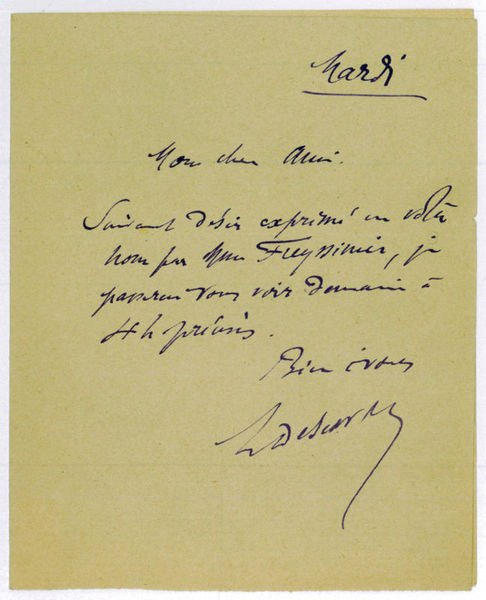 Mardi
Mon cher Ami.
Suivant désir exprimé en votre
nom par Mme Freyssinier, je
passerai vous voir demain à
4 h précises.
Bien à vous